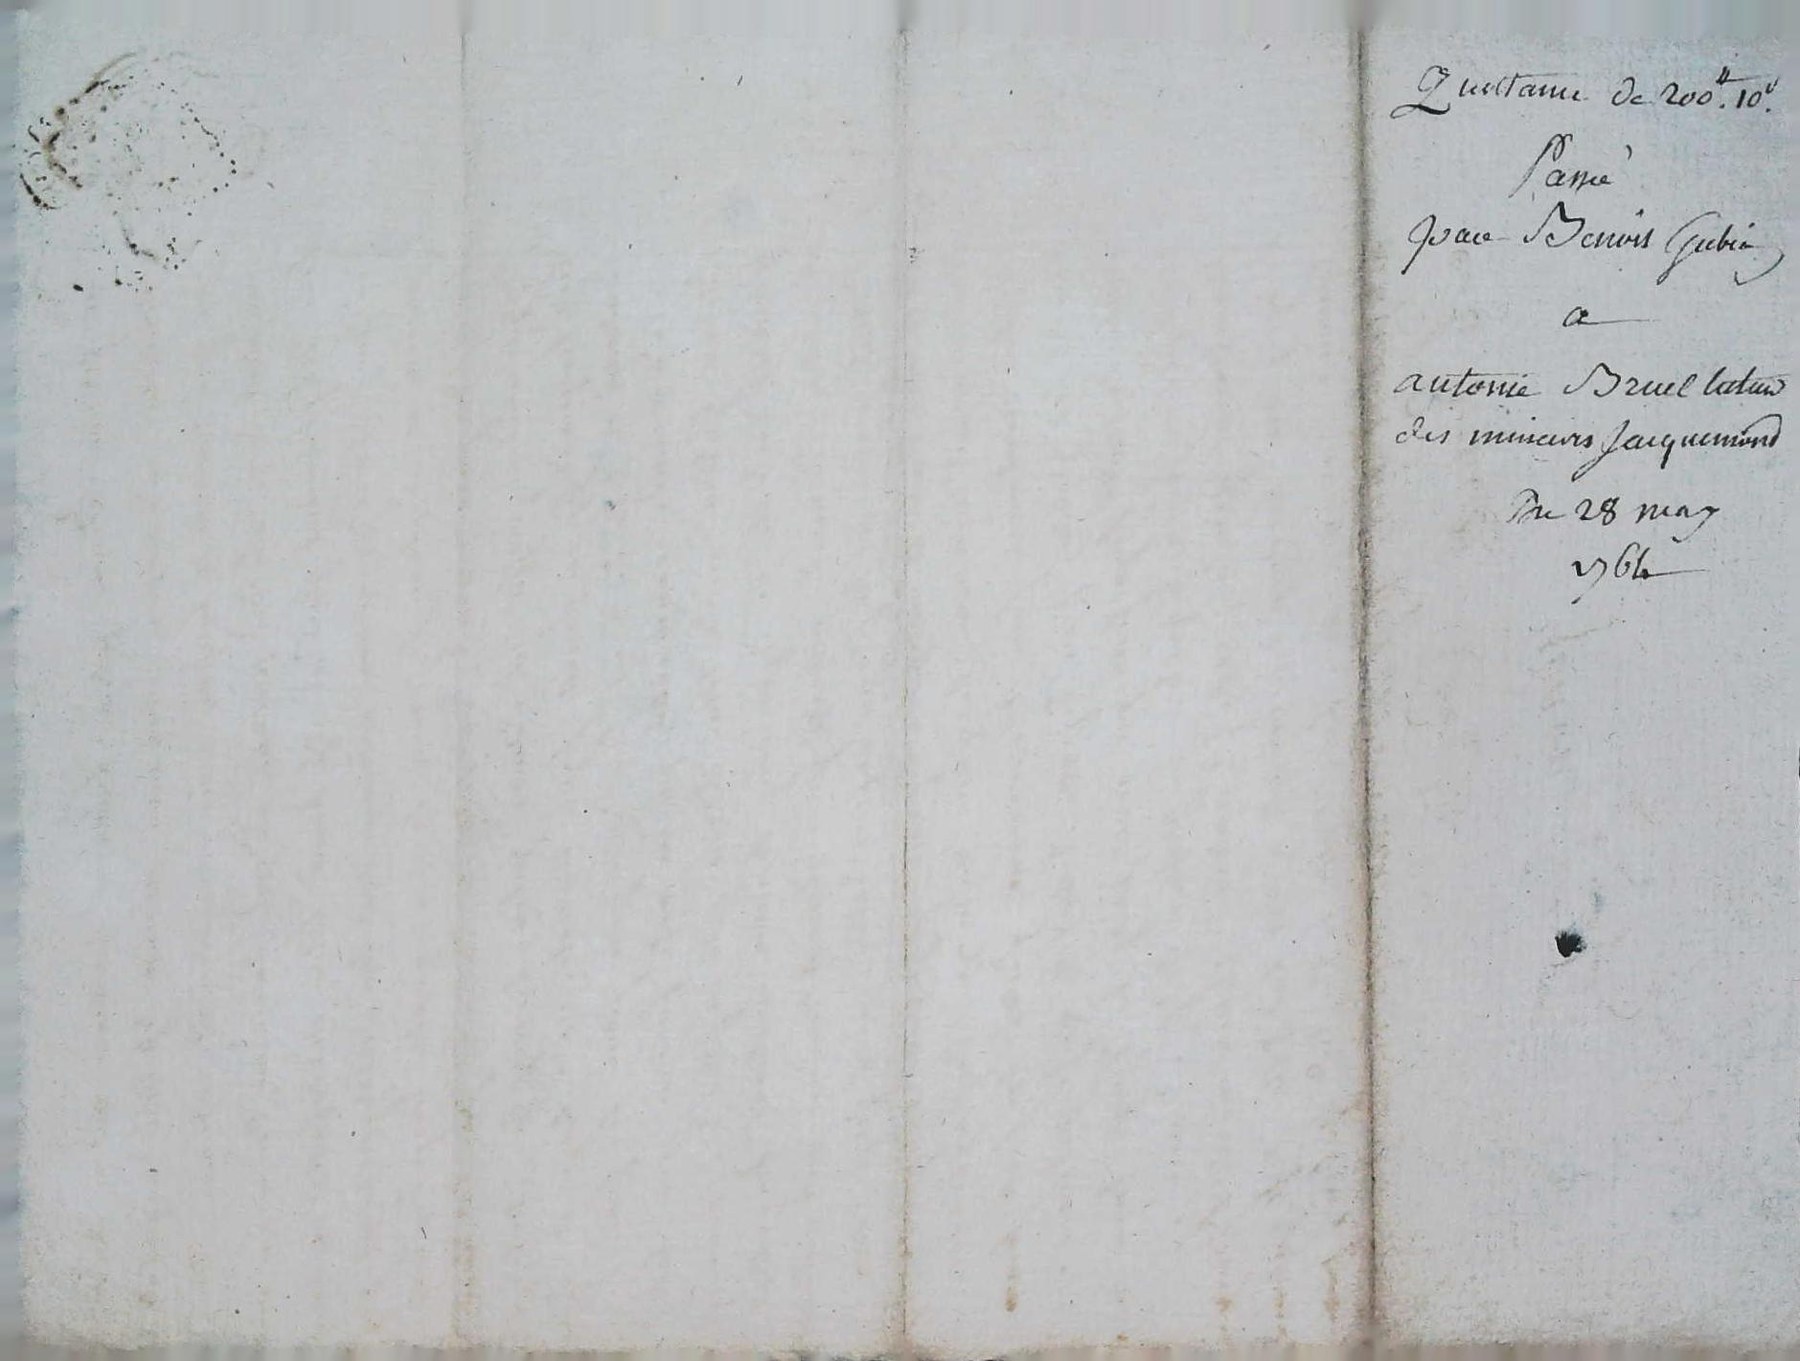 Quittance de 200ᵗᵗ. 10ˢ.
Passé
par Benoit Gubia
a
antoine Bruel tuteur
des mineurs Jacquemond
Du 28 may
1764